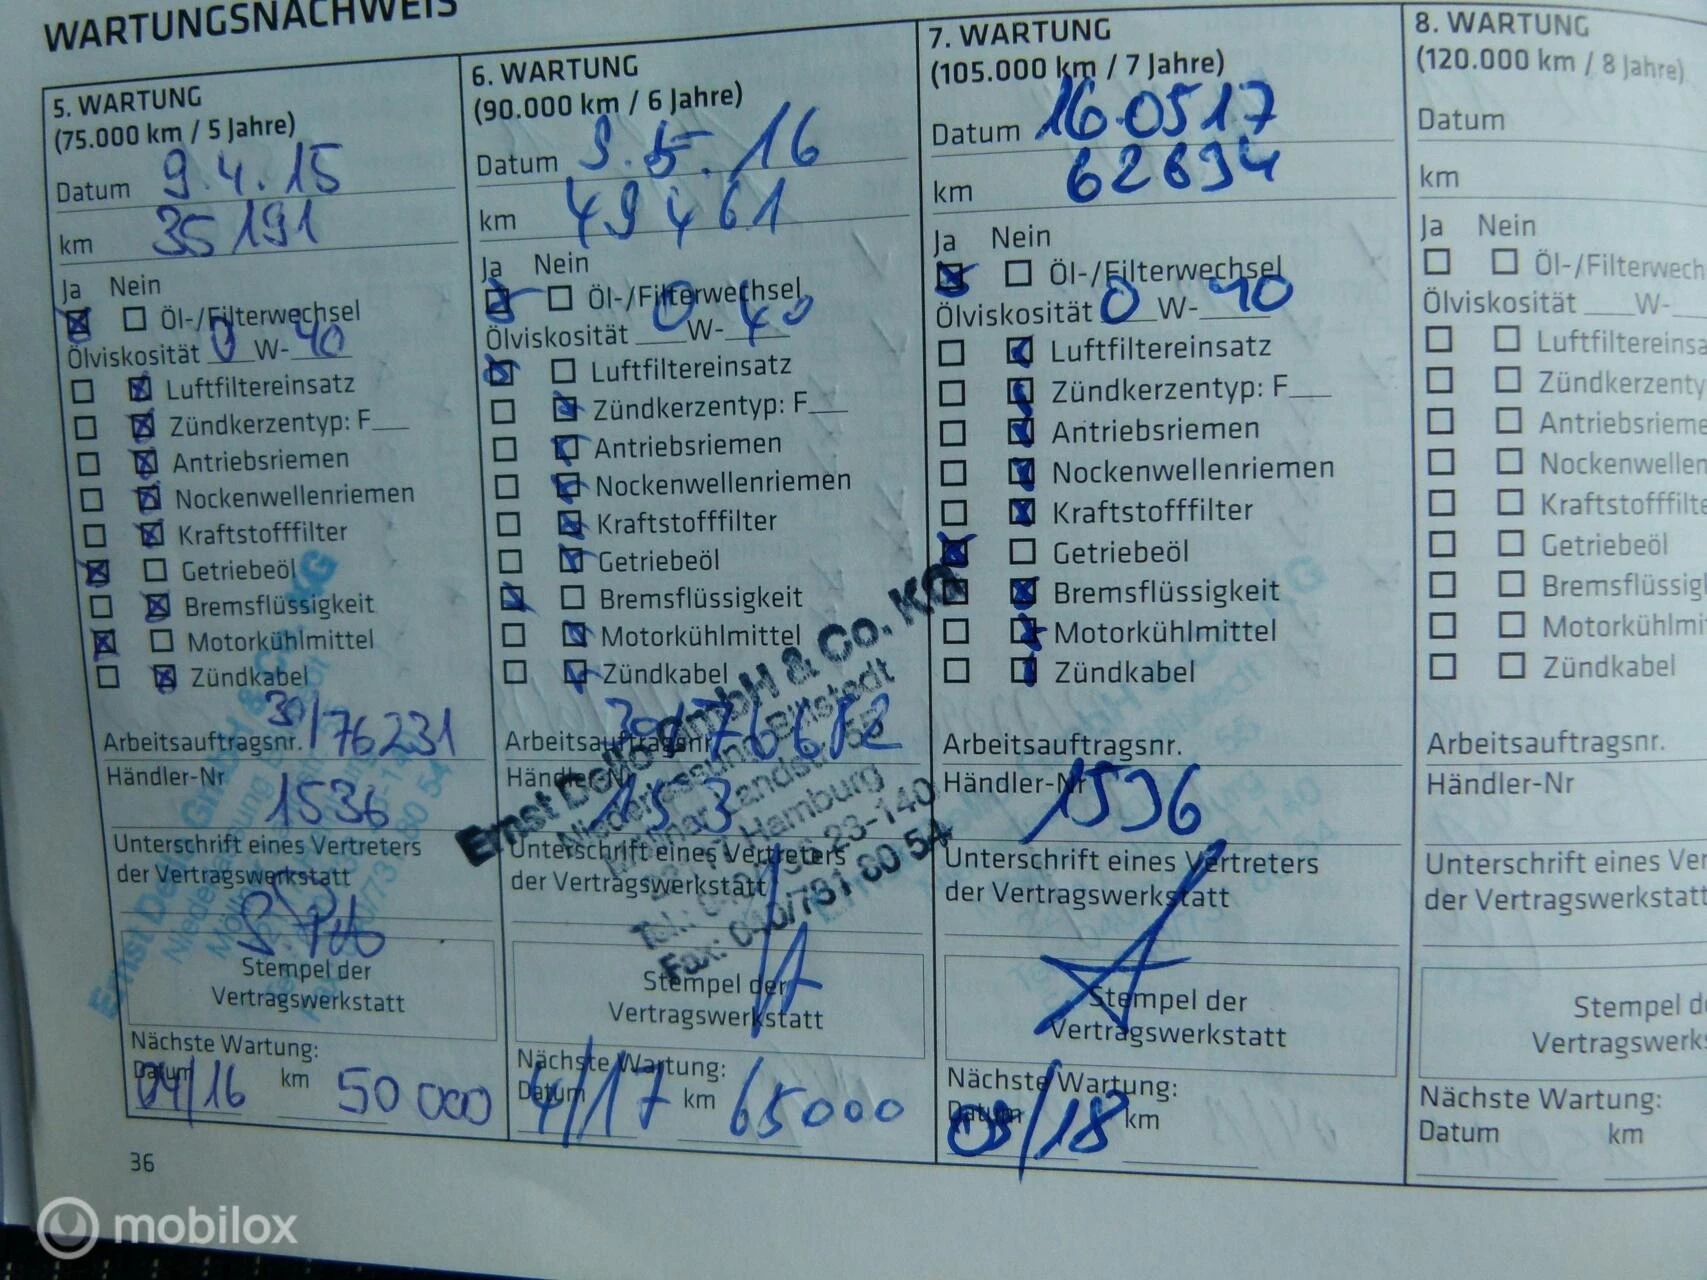 WARTUNGSNACHWEIS
5. WARTUNG
(75.000 km / 5 Jahre)
Datum 9.4.15
km 35191
Ja Nein
Öl-/Filterwechsel
Ölviskosität 0 W- 40
Luftfiltereinsatz
Zündkerzentyp: F__
Antriebsriemen
Nockenwellenriemen
Kraftstofffilter
Getriebeöl
Bremsflüssigkeit
Motorkühlmittel
Zündkabel
Arbeitsauftragsnr. 30/76231
Händler-Nr
1536
Unterschrift eines Vertreters
der Vertragswerkstatt
Stempel der
Vertragswerkstatt
Nächste Wartung:
Datum 04/16 km 50 000
36
6. WARTUNG
(90.000 km / 6 Jahre)
Datum 9.5.16
km 49461
Ja Nein
Öl-/Filterwechsel
Ölviskosität 0 W- 40
Luftfiltereinsatz
Zündkerzentyp: F__
Antriebsriemen
Nockenwellenriemen
Kraftstofffilter
Getriebeöl
Bremsflüssigkeit
Motorkühlmittel
Zündkabel
Arbeitsauftragsnr.
Händler-Nr
Ernst Dello GmbH & Co. KG
Niederlassung Billstedt
Hamburg
Fax: 040/731 80 54
Unterschrift eines Vertreters
der Vertragswerkstatt
Stempel der
Vertragswerkstatt
Nächste Wartung:
Datum 4/17 km 65000
7. WARTUNG
(105.000 km / 7 Jahre)
Datum 16.05 17
km 62694
Ja Nein
Öl-/Filterwechsel
Ölviskosität 0 W- 40
Luftfiltereinsatz
Zündkerzentyp: F__
Antriebsriemen
Nockenwellenriemen
Kraftstofffilter
Getriebeöl
Bremsflüssigkeit
Motorkühlmittel
Zündkabel
Arbeitsauftragsnr.
Händler-Nr
1536
Unterschrift eines Vertreters
der Vertragswerkstatt
Stempel der
Vertragswerkstatt
Nächste Wartung:
Datum 05/18 km
8. WARTUNG
(120.000 km / 8 Jahre)
Datum
km
Ja Nein
Öl-/Filterwech
Ölviskosität ___W-
Luftfiltereinsa
Zündkerzenty
Antriebsrieme
Nockenwellen
Kraftstofffilte
Getriebeöl
Bremsflüssig
Motorkühlmit
Zündkabel
Arbeitsauftragsnr.
Händler-Nr
Unterschrift eines Ver
der Vertragswerkstatt
Stempel d
Vertragswerks
Nächste Wartung:
Datum km
mobilox